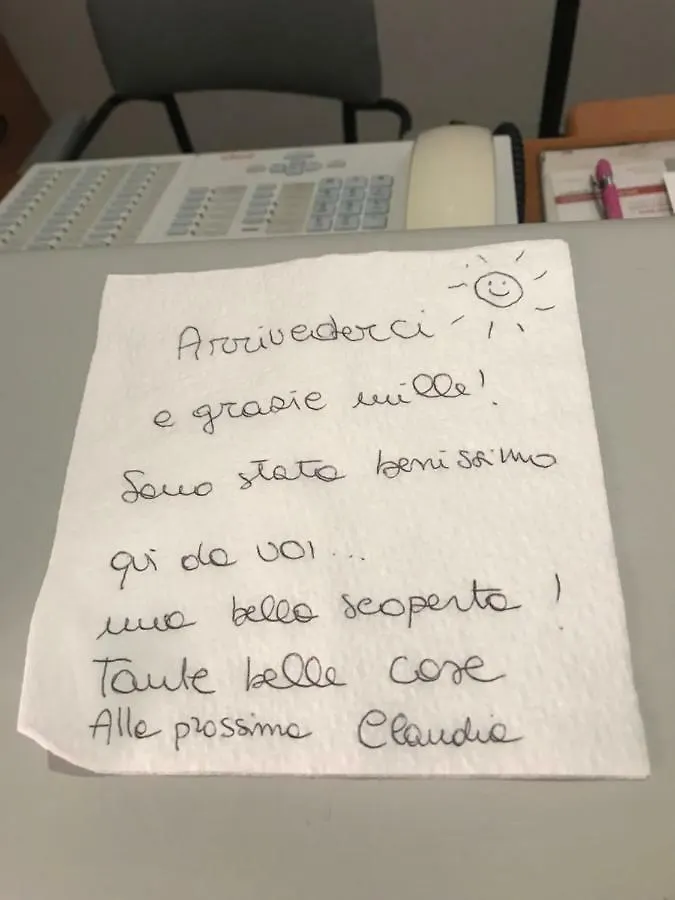 Arrivederci
e grazie mille!
Sono stata benissimo
qui da voi...
una bella scoperta!
Tante belle cose
Alla prossima Claudia